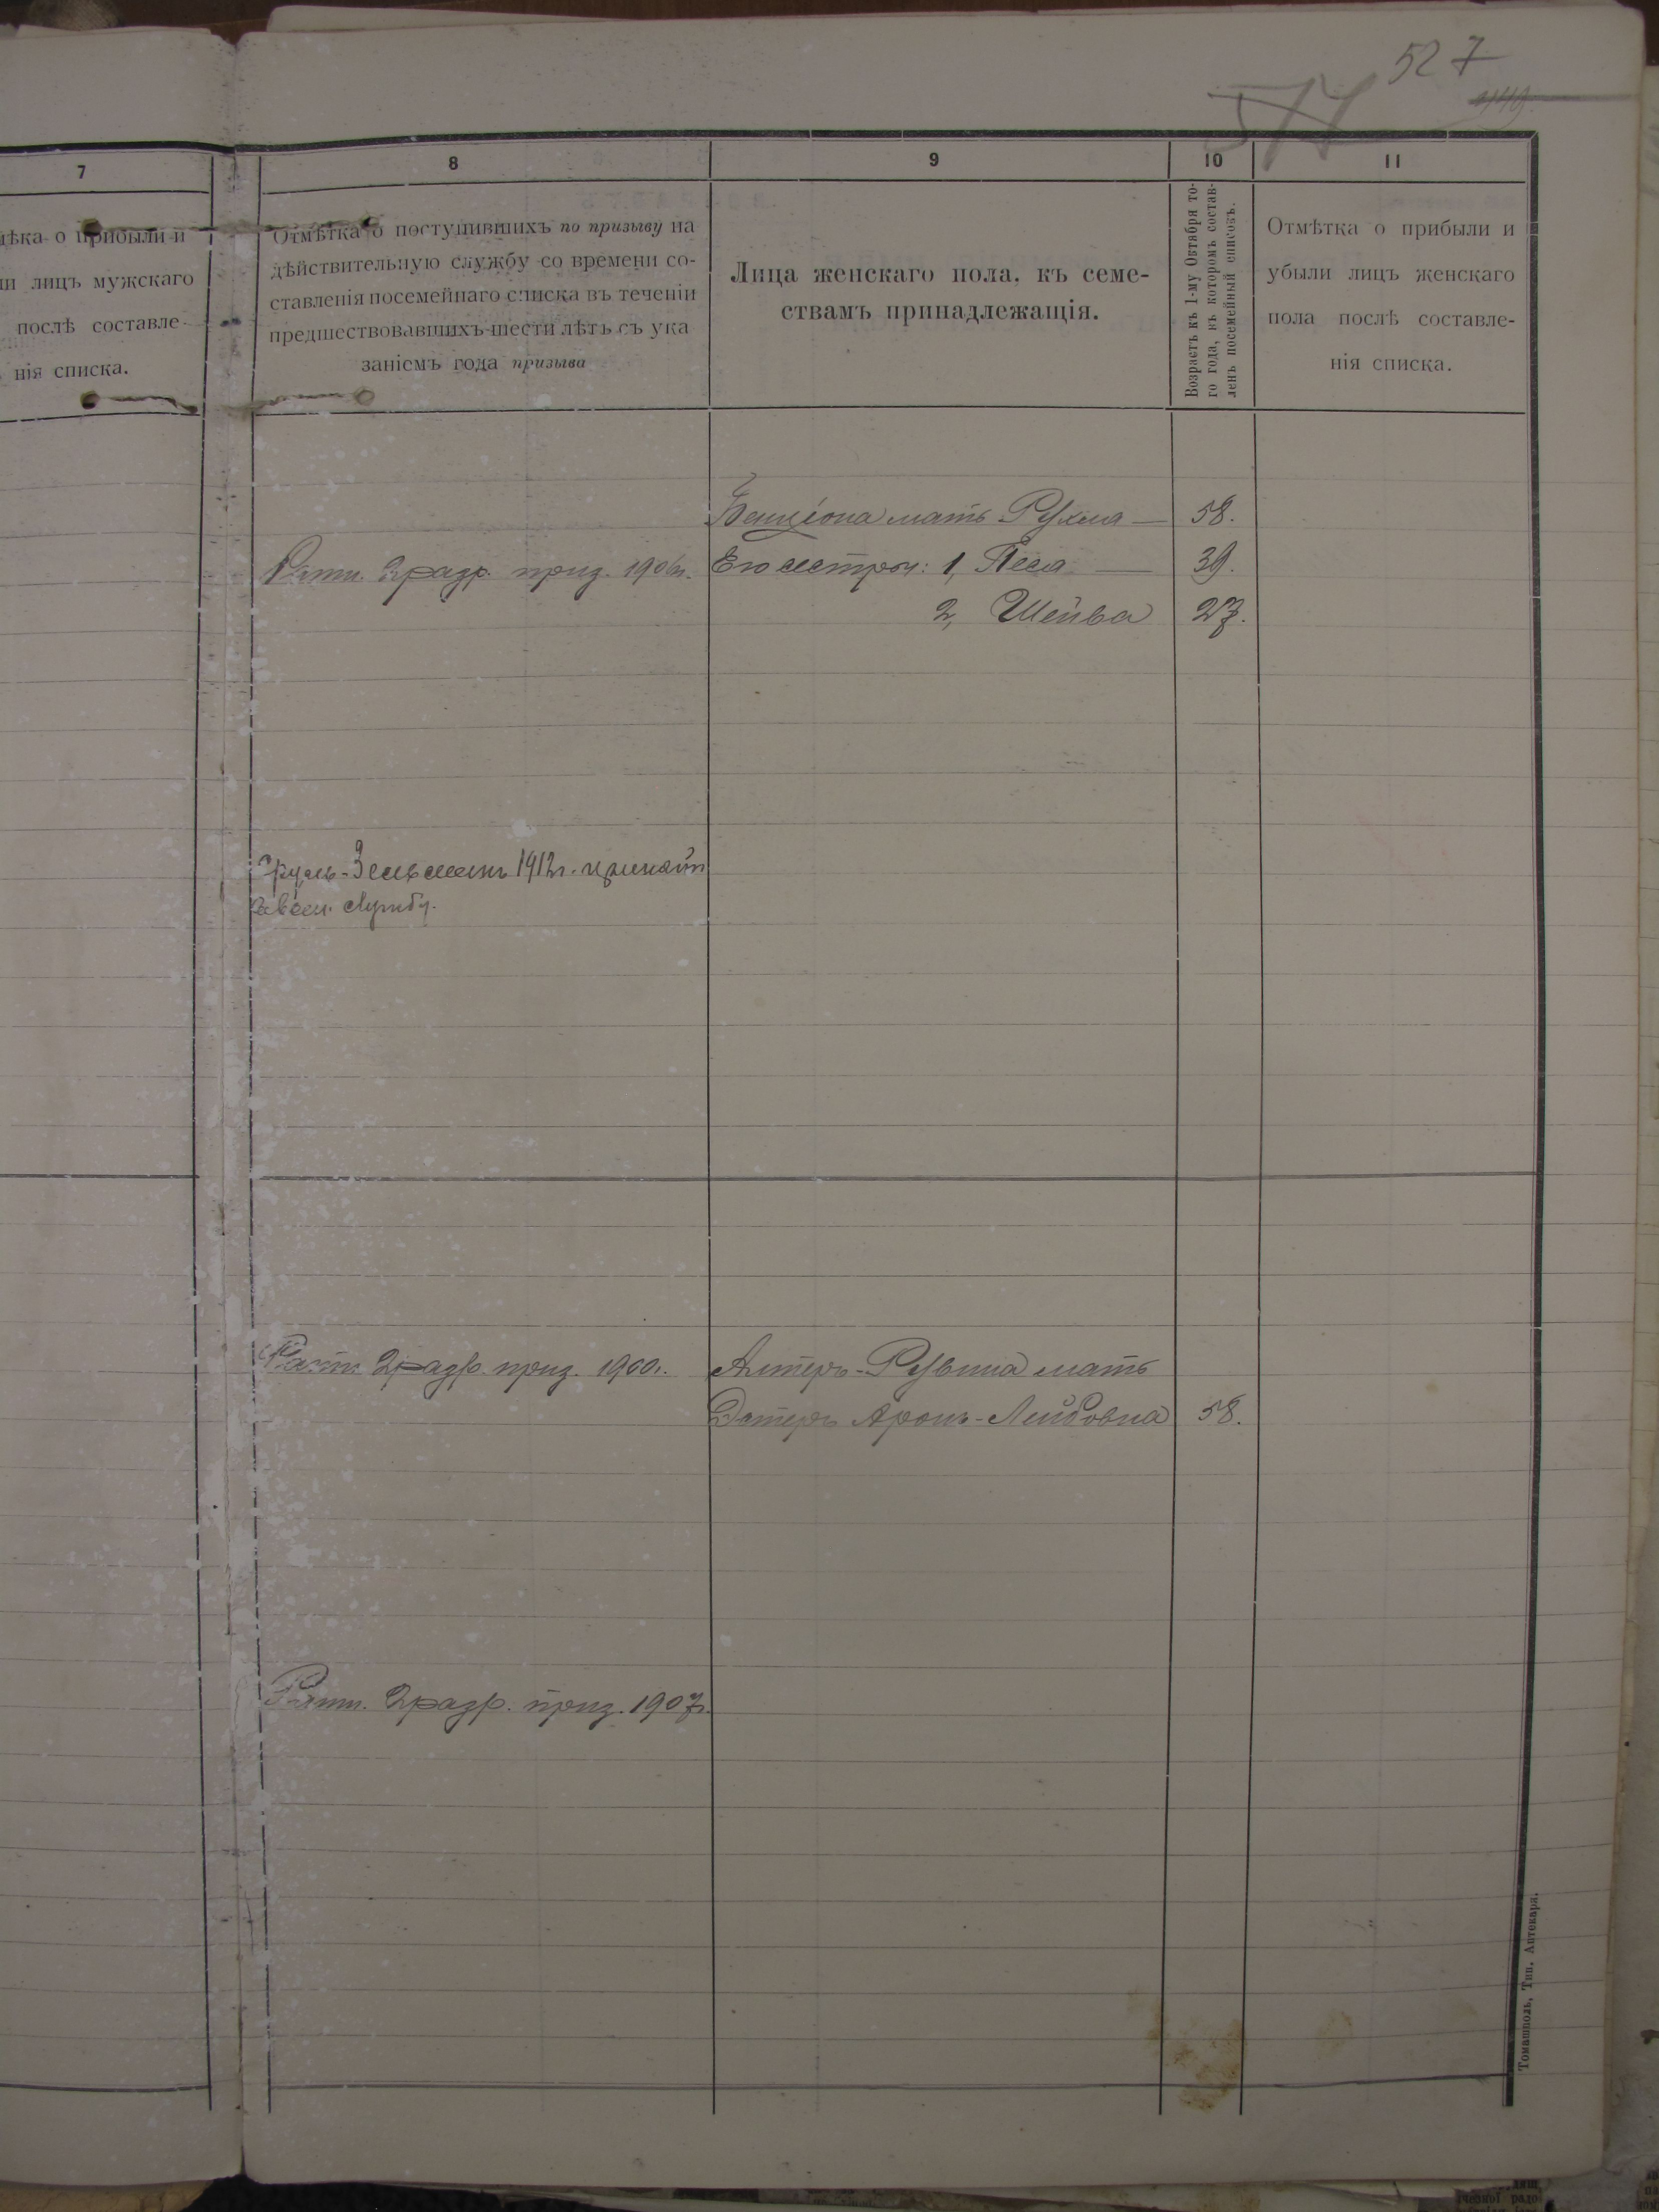 527
449
7
8
9
10
11
ѣка о прибыли и
и лицъ мужскаго
послѣ составле-
нія списка.
Отмѣтка о поступившихъ по призыву на
дѣйствительную службу со времени со-
ставленія посемейнаго списка въ теченіи
предшествовавшихъ шести лѣтъ съ ука
заніемъ года призыва
Лица женскаго пола, къ семе-
ствамъ принадлежащія.
Возрастъ къ 1-му Октября то-
го года, къ которомъ состав-
ленъ посемейный списокъ.
Отмѣтка о прибыли и
убыли лицъ женскаго
пола послѣ составле-
нія списка.
Бенціона мать Рухля — 58.
Ратн. 2 разр. приз. 190 г. Его сестры: 1, Песя — 39.
2, Шейва 27.
Сруль-Зельманъ 1912 г. принятъ
на воен. службу.
Ратн. 2 разр. приз. 1900 г. Алтеръ-Рувина мать
Эстеръ Аронъ-Лейбовна 58.
Ратн. 2 разр. приз. 1907 г.
Томашполь, Тип. Аптекаря.